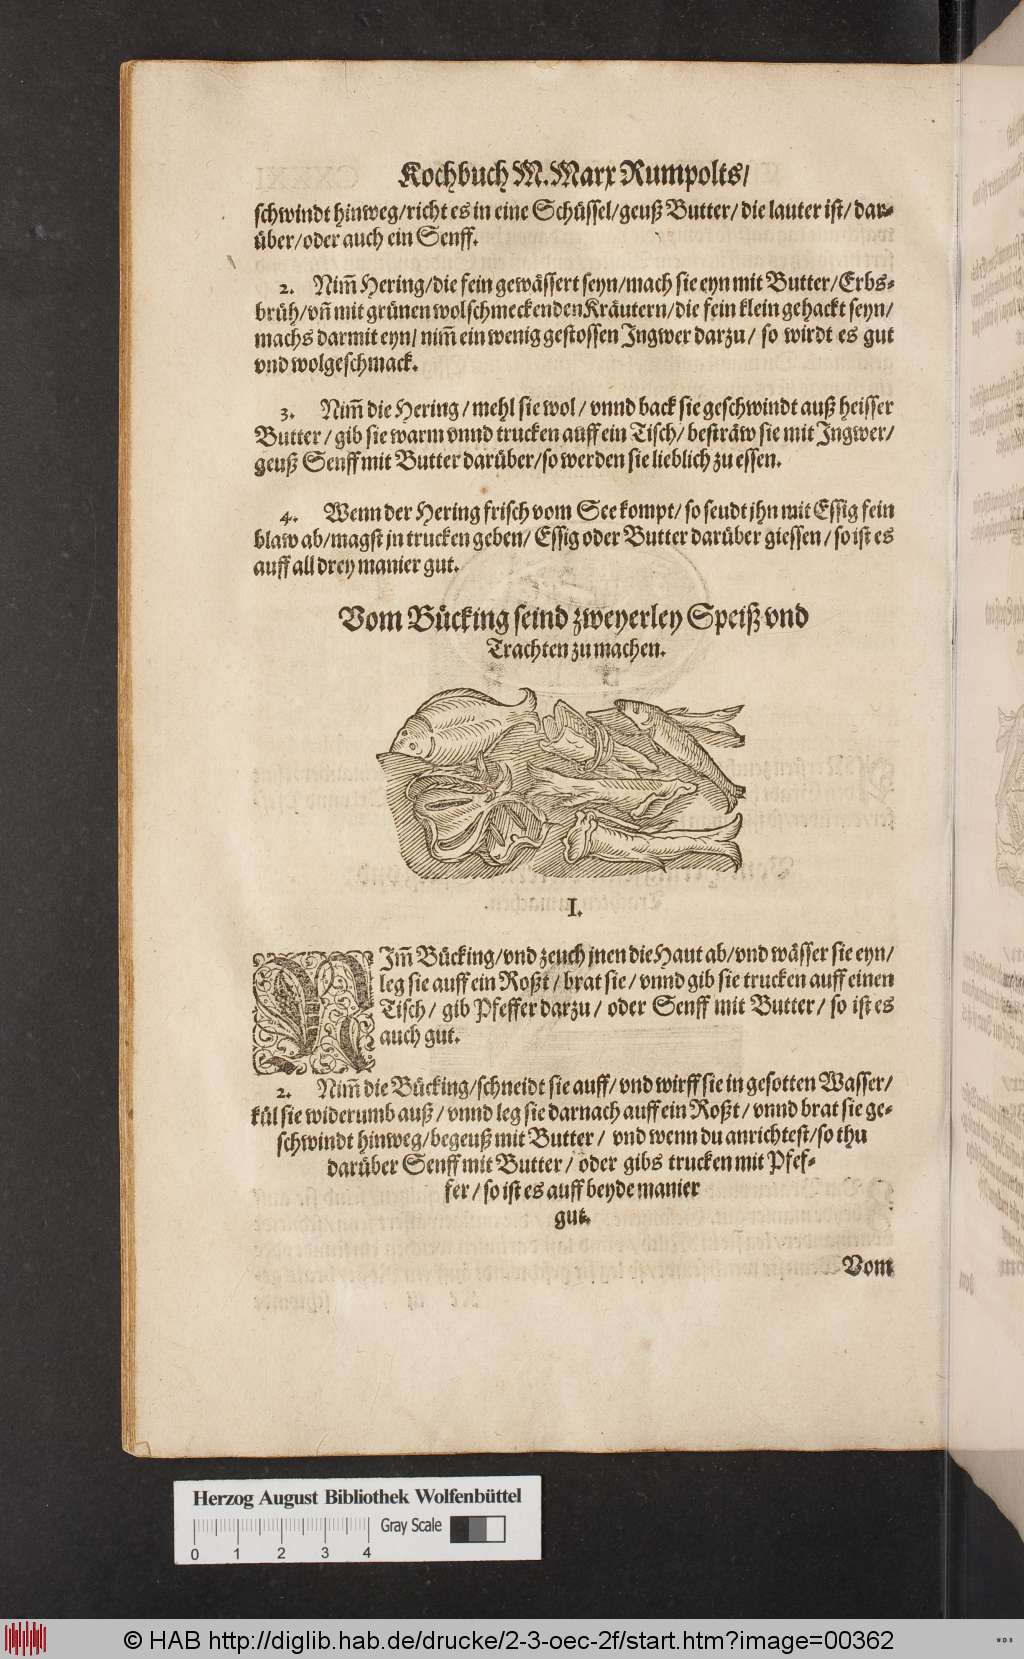 Kochbuch M. Marx Rumpolts/
schwindt hinweg/richt es in eine Schüssel/geuß Butter/ die lauter ist/ dar-
über/oder auch ein Senff.
2. Nim̄ Hering/die fein gewässert seyn/mach sie eyn mit Butter/Erbs-
brüh/vn̄ mit grünen wolschmeckenden Kräutern/die fein klein gehackt seyn/
machs darmit eyn/ nim̄ ein wenig gestossen Ingwer darzu/ so wirdt es gut
vnd wolgeschmack.
3. Nim̄ die Hering/ mehl sie wol/ vnnd back sie geschwindt auß heisser
Butter/ gib sie warm vnnd trucken auff ein Tisch/ besträw sie mit Ingwer/
geuß Senff mit Butter darüber/so werden sie lieblich zu essen.
4. Wenn der Hering frisch vom See kompt/ so seudt jhn mit Essig fein
blaw ab/magst jn trucken geben/ Essig oder Butter darüber giessen/ so ist es
auff all drey manier gut.
Vom Bücking seind zweyerley Speiß vnd
Trachten zu machen.
I.
NIm̄ Bücking/vnd zeuch jnen die Haut ab/vnd wässer sie eyn/
leg sie auff ein Roßt/ brat sie/ vnnd gib sie trucken auff einen
Tisch/ gib Pfeffer darzu/ oder Senff mit Butter/ so ist es
auch gut.
2. Nim̄ die Bücking/schneidt sie auff/ vnd wirff sie in gesotten Wasser/
kül sie widerumb auß/ vnnd leg sie darnach auff ein Roßt/ vnnd brat sie ge-
schwindt hinweg/begeuß mit Butter/ vnd wenn du anrichtest/so thu
darüber Senff mit Butter/ oder gibs trucken mit Pfef-
fer/ so ist es auff beyde manier
gut.
Vom
Herzog August Bibliothek Wolfenbüttel
Gray Scale
0 1 2 3 4
© HAB http://diglib.hab.de/drucke/2-3-oec-2f/start.htm?image=00362